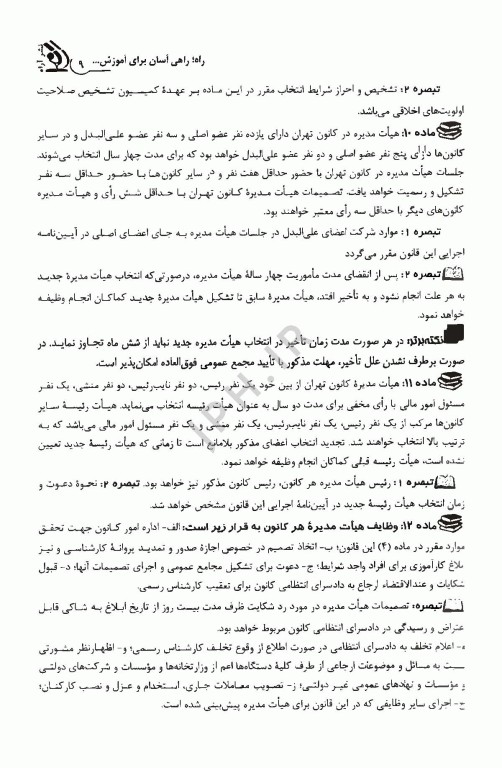 راه؛ راهی آسان برای آموزش... ۹
تبصره ۲: تشخیص و احراز شرایط انتخاب مقرر در این ماده بر عهدهٔ کمیسیون تشخیص صلاحیت
اولویت‌های اخلاقی می‌باشد.
ماده ۱۰: هیأت مدیره در کانون تهران دارای یازده نفر عضو اصلی و سه نفر عضو علی‌البدل و در سایر
کانون‌ها دارای پنج نفر عضو اصلی و دو نفر عضو علی‌البدل خواهد بود که برای مدت چهار سال انتخاب می‌شوند.
جلسات هیأت مدیره در کانون تهران با حضور حداقل هفت نفر و در سایر کانون‌ها با حضور حداقل سه نفر
تشکیل و رسمیت خواهد یافت. تصمیمات هیأت مدیرهٔ کانون تهران با حداقل شش رأی و هیأت مدیره
کانون‌های دیگر با حداقل سه رأی معتبر خواهند بود.
تبصره ۱: موارد شرکت اعضای علی‌البدل در جلسات هیأت مدیره به جای اعضای اصلی در آیین‌نامه
اجرایی این قانون مقرر می‌گردد
تبصره ۲: پس از انقضای مدت مأموریت چهار سالهٔ هیأت مدیره، درصورتی‌که انتخاب هیأت مدیرهٔ جدید
به هر علت انجام نشود و به تأخیر افتد، هیأت مدیرهٔ سابق تا تشکیل هیأت مدیرهٔ جدید کماکان انجام وظیفه
خواهد نمود.
نکته‌برتر: در هر صورت مدت زمان تأخیر در انتخاب هیأت مدیره جدید نباید از شش ماه تجاوز نماید. در
صورت برطرف نشدن علل تأخیر، مهلت مذکور با تأیید مجمع عمومی فوق‌العاده امکان‌پذیر است.
ماده ۱۱: هیأت مدیرهٔ کانون تهران از بین خود یک نفر رئیس، دو نفر نایب‌رئیس، دو نفر منشی، یک نفر
مسئول امور مالی با رأی مخفی برای مدت دو سال به عنوان هیأت رئیسه انتخاب می‌نماید. هیأت رئیسهٔ سایر
کانون‌ها مرکب از یک نفر رئیس، یک نفر نایب‌رئیس، یک نفر منشی و یک نفر مسئول امور مالی می‌باشد که به
ترتیب بالا انتخاب خواهند شد. تجدید انتخاب اعضای مذکور بلامانع است تا زمانی که هیأت رئیسهٔ جدید تعیین
نشده است، هیأت رئیسه قبلی کماکان انجام وظیفه خواهد نمود.
تبصره ۱: رئیس هیأت مدیره هر کانون، رئیس کانون مذکور نیز خواهد بود. تبصره ۲: نحوهٔ دعوت و
زمان انتخاب هیأت رئیسهٔ جدید در آیین‌نامهٔ اجرایی این قانون مشخص خواهد شد.
ماده ۱۲: وظایف هیأت مدیرهٔ هر کانون به قرار زیر است: الف- اداره امور کانون جهت تحقق
موارد مقرر در ماده (۴) این قانون؛ ب- اتخاذ تصمیم در خصوص اجازهٔ صدور و تمدید پروانهٔ کارشناسی و نیز
بلاغ کارآموزی برای افراد واجد شرایط؛ ج- دعوت برای تشکیل مجامع عمومی و اجرای تصمیمات آنها؛ د- قبول
شکایات و عندالاقتضاء ارجاع به دادسرای انتظامی کانون برای تعقیب کارشناس رسمی.
تبصره: تصمیمات هیأت مدیره در مورد رد شکایت ظرف مدت بیست روز از تاریخ ابلاغ به شاکی قابل
عتراض و رسیدگی در دادسرای انتظامی کانون مربوط خواهد بود.
ه- اعلام تخلف به دادسرای انتظامی در صورت اطلاع از وقوع تخلف کارشناس رسمی؛ و- اظهارنظر مشورتی
سبت به مسائل و موضوعات ارجاعی از طرف کلیهٔ دستگاه‌ها اعم از وزارتخانه‌ها و مؤسسات و شرکت‌های دولتی
و مؤسسات و نهادهای عمومی غیر دولتی؛ ز- تصویب معاملات جاری، استخدام و عزل و نصب کارکنان؛
ح- اجرای سایر وظایفی که در این قانون برای هیأت مدیره پیش‌بینی شده است.
JPH.IR